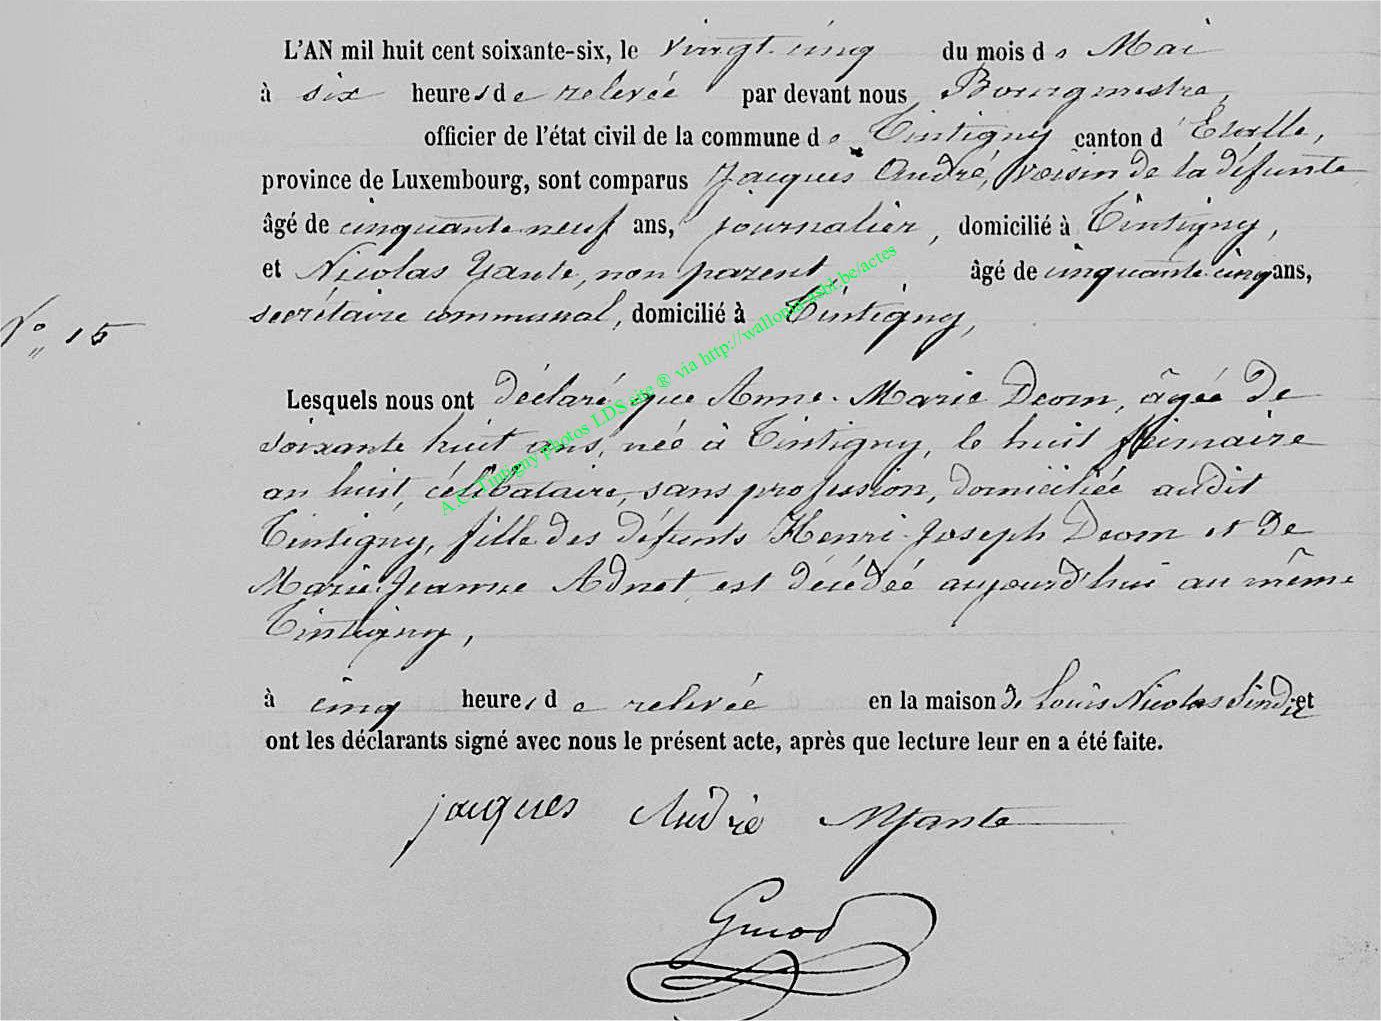 L'AN mil huit cent soixante-six, le vingt-cinq du mois de Mai
à six heures de relevée par devant nous Bourgmestre,
officier de l'état civil de la commune de Tintigny canton d'Etalle,
province de Luxembourg, sont comparus Jacques André, voisin de la défunte
âgé de cinquante neuf ans, journalier, domicilié à Tintigny,
et Nicolas Yante, non parent, âgé de cinquante-cinq ans,
secrétaire communal, domicilié à Tintigny,
N° 15
Lesquels nous ont déclaré que Anne-Marie Deom, âgée de
soixante huit ans, née à Tintigny, le huit frimaire
an huit, célibataire, sans profession, domiciliée audit
Tintigny, fille des défunts Henri-Joseph Deom et de
Marie Jeanne Adnet, est décédée aujourd'hui au même
Tintigny,
à cinq heures de relevée en la maison de Louis Nicolas et
ont les déclarants signé avec nous le présent acte, après que lecture leur en a été faite.
jacques André NYante
A.C. Tintigny photos LDS site ® via http://wallonia-asbl.be/actes